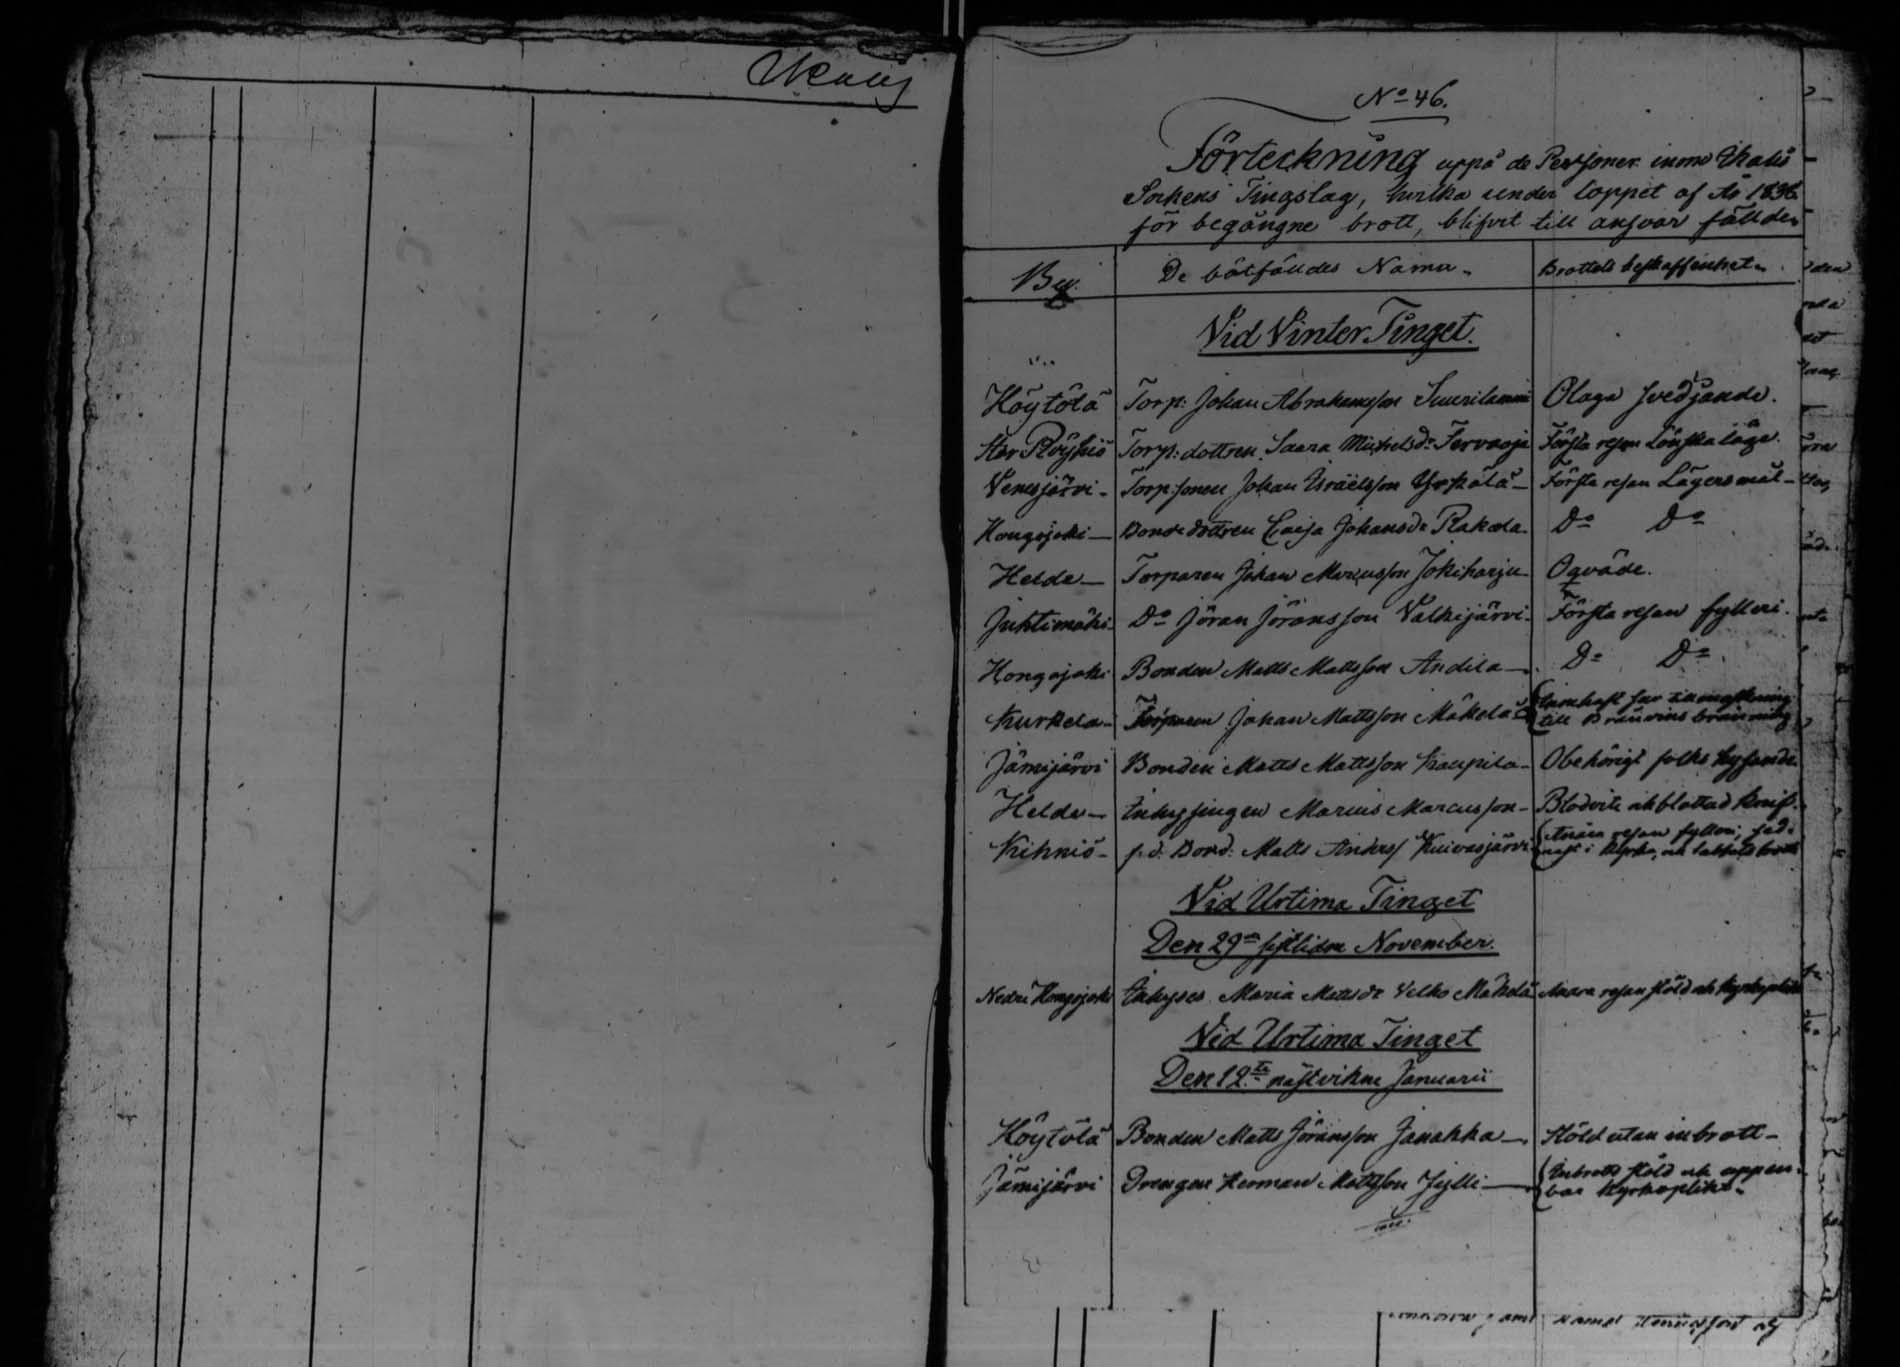 No 46.
Förteckning uppå de Personer inom Ikalis
Sockens Tingslag, hvilka under loppet af År 1836
för begångne brott, blifvit till ansvar fällde.
By. De bötfälldes Namn. Brottets beskaffenhet.
Vid Vinter Tinget.
Höytölä Torp: Johan Abrahamsson Suurilammi Olaga svedjande.
Röyhiö Torp: dottren Saara Michelsdr Tervaoja Första resan Lönskaläge.
Venesjärvi Torp: sonen Johan Israëlsson Yrkälä Första resan Lägersmål
Hongojoki Bonde dottren Caisa Johansdr Rakola Do Do
Helde Torparen Johan Marcusson Jokiharju Oqväde.
Juhtimäki Do Jöran Jöransson Valkijärvi Första resan fylleri.
Hongojoki Bonden Matts Mattsson Andila Do Do
Kurkela Torparen Johan Mattsson Mäkelä
till Bränvins bränning
Jämijärvi Bonden Matts Mattsson Kaupila Obehörigt folks hysande
Helde Inhysingen Marcus Marcusson Blodvite ak blottad knif.
Kihniö f.d. Bond: Matts Anders Kuivasjärvi Andra resan fylleri,
i kyrka, ak sabbatsbrott
Vid Urtima Tinget
Den 29de sistlidne November.
Nedre Hongojoki Inhyses Maria Mattsdr Velho Mäkelä Andra resan stöld ak kyrkoplikt
Vid Urtima Tinget
Den 12te nästvikne Januarii
Höytölä Bonden Matts Jöransson Janakka Stöld utan inbrott
Jämijärvi Drengen Herman Mattsson Jylli Inbrotts stöld ak uppen-
bar kyrkoplikt